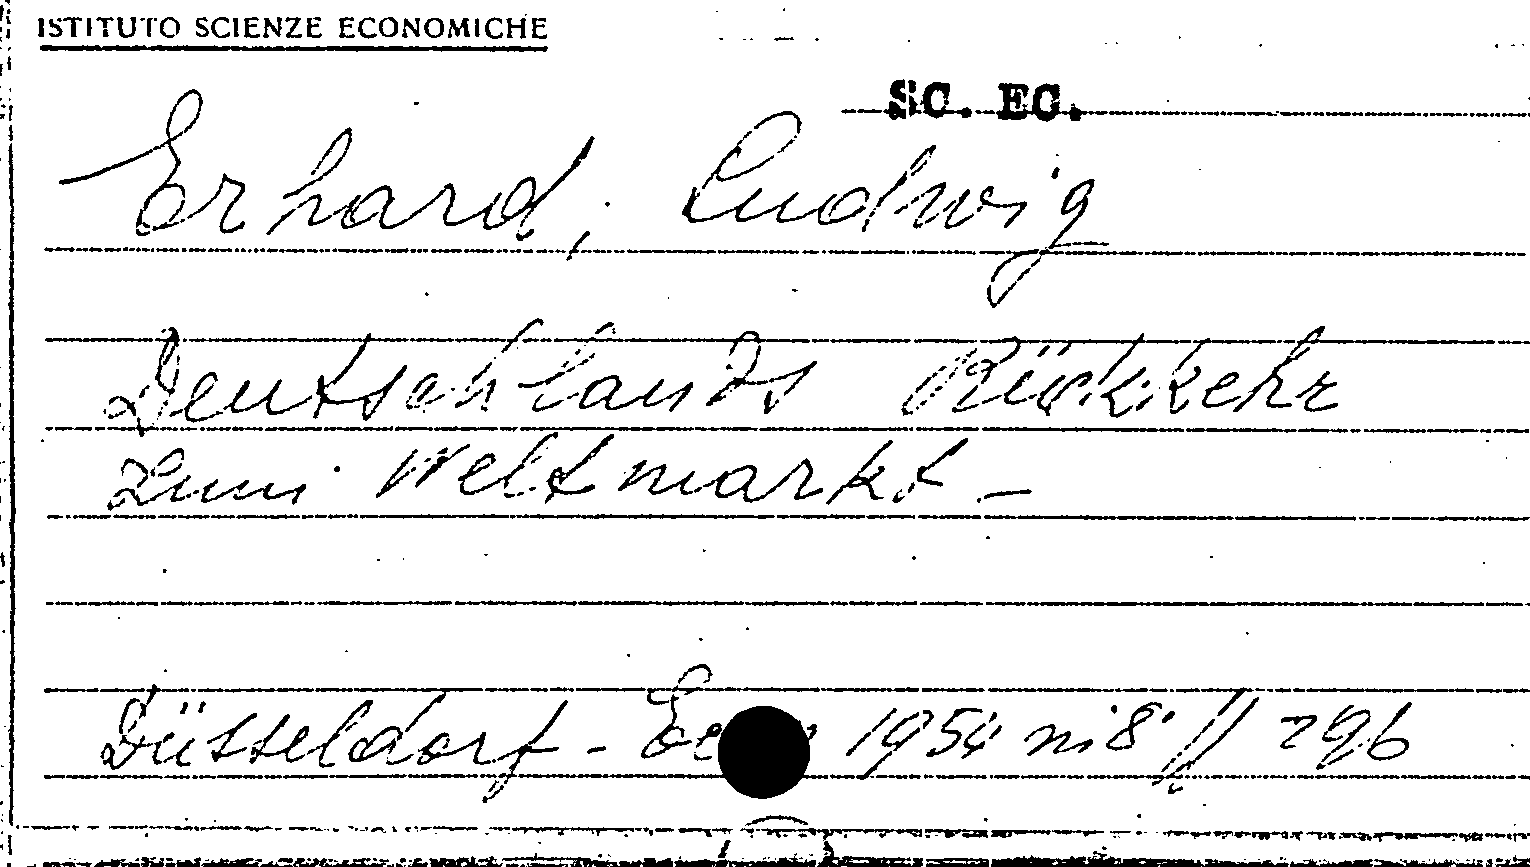 ISTITUTO SCIENZE ECONOMICHE
SC. EC.
Erhard, Ludwig
Deutschlands Rückkehr
zum Weltmarkt -
Düsseldorf - 1954 in 8° // 296